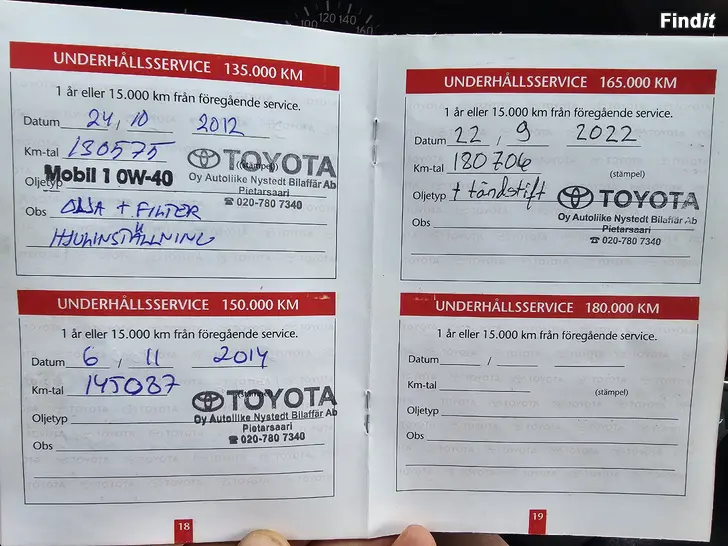 Findit
100 120 140 160
UNDERHÅLLSSERVICE 135.000 KM
1 år eller 15.000 km från föregående service.
Datum 24, 10 2012
Km-tal 130575
(stämpel)
TOYOTA
Oljetyp Mobil 1 0W-40
Oy Autoliike Nystedt Bilaffär Ab
Pietarsaari
☎ 020-780 7340
Obs OLJA + FILTER
HJULINSTÄLLNING
UNDERHÅLLSSERVICE 150.000 KM
1 år eller 15.000 km från föregående service.
Datum 6 / 11 2014
Km-tal 145087
TOYOTA
Oljetyp
Oy Autoliike Nystedt Bilaffär Ab
Pietarsaari
☎ 020-780 7340
Obs
18
UNDERHÅLLSSERVICE 165.000 KM
1 år eller 15.000 km från föregående service.
Datum 22, 9 2022
Km-tal 180706
(stämpel)
Oljetyp + tändstift
TOYOTA
Oy Autoliike Nystedt Bilaffär Ab
Pietarsaari
☎ 020-780 7340
Obs
UNDERHÅLLSSERVICE 180.000 KM
1 år eller 15.000 km från föregående service.
Datum /
Km-tal
(stämpel)
Oljetyp
Obs
19